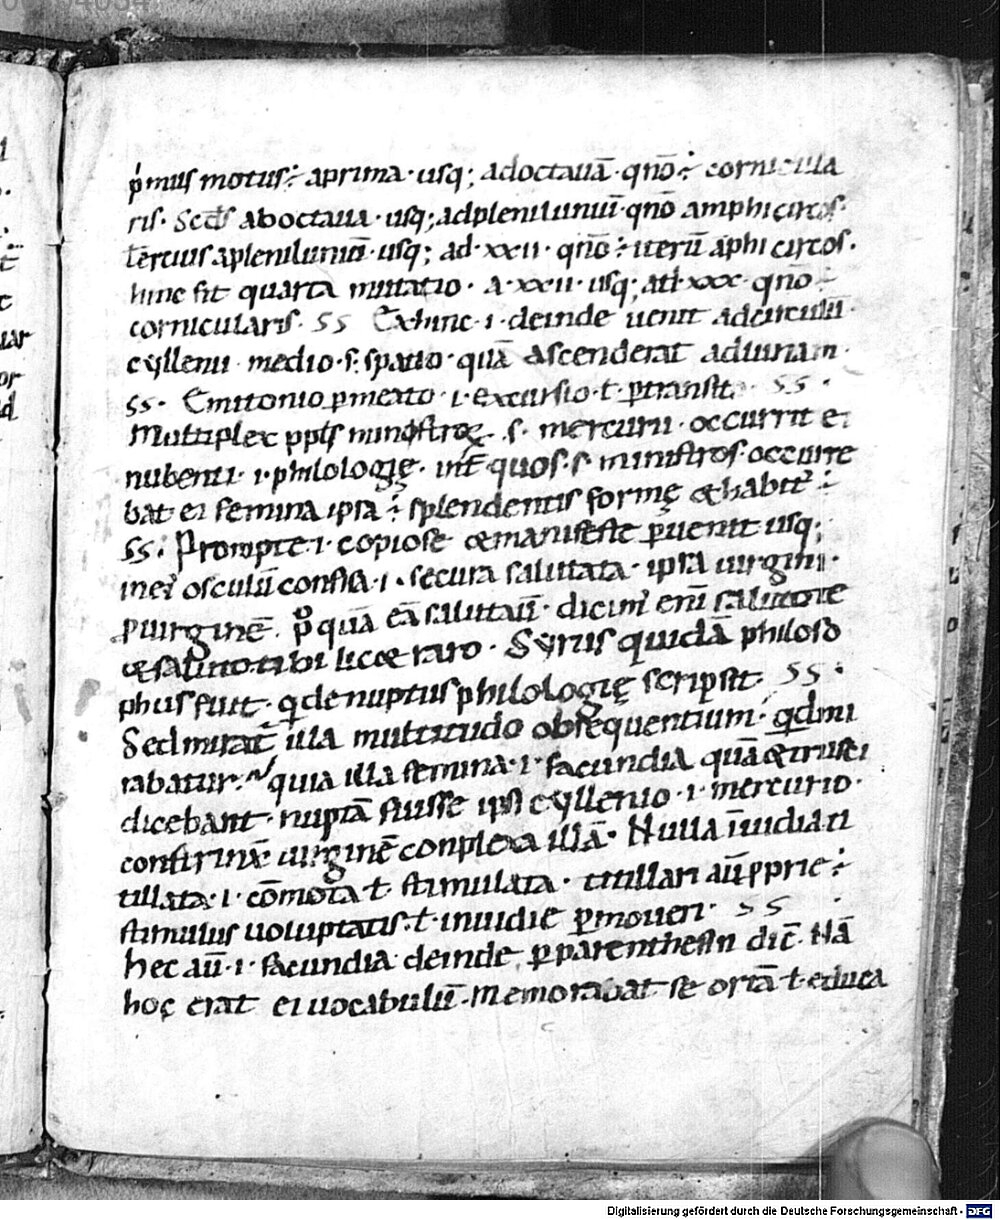 p̍mus motus ÷ aprima · usq; adoctauā · qnō ÷ cornicula
ris · Scds aboctaua · usq; adplenilunіū · qnō amphicircos ·
tercius aplenilunіū · usq; ad · xxii · qnō ÷ iterū āphicircos .
hinc fit quarta mutatio · a · xxii · usq; ad · xxx · qnō ÷
cornicularis · SS Exhinc · i · deinde uenit adcirculū ·
cyllenii · medio · s · spatio · quā ascenderat aduiriam ·
SS · Emitonio p̱meato · i · excursio · ł · p̱transit · SS ·
Multiplex ppłs ministroꝝ · s · mercurii · occurrit ei
nubenti · i · philologię · int̄ quos · s · ministros · occurre
bat ei femina ipsa ÷ splendentis formę &habit᾿ ÷
SS · Prompte · i · copiose &manifeste p̱uenit usq;
inei᾿ osculū confisa · i · secura salutata · ipsa uirgini ·
p̱uirginē · p̊quā eā salutau̅ · dicim᾿ eni̅ salutote
&saluto tibi lic& raro · Syrus quidā philoso
phus fuit · q̍ de nuptiis philologię scripsit · SS ·
Sed mirat᾿ illa multitudo obsequentium · qdmi
rabatur · quia illa femina · i · facundia quā&trusci
dicebant · nuptā fuisse ipsi cyllenio · i · mercurio ·
confirmat᾿ uirginē conplexa illā · Nulla īuidia ti
tillata · i · cōmota ł · stimulata · titillari au̅ pprie ÷
stimulis uoluptatis · ł · inuidie p̱moueri · SS
hec au̅ · i · facundia deinde p̱parenthesin dic̄ · Nā
hoc erat ei uocabulū · memorabat se ortā · ł · educa
Digitalisierung gefördert durch die Deutsche Forschungsgemeinschaft - DFG